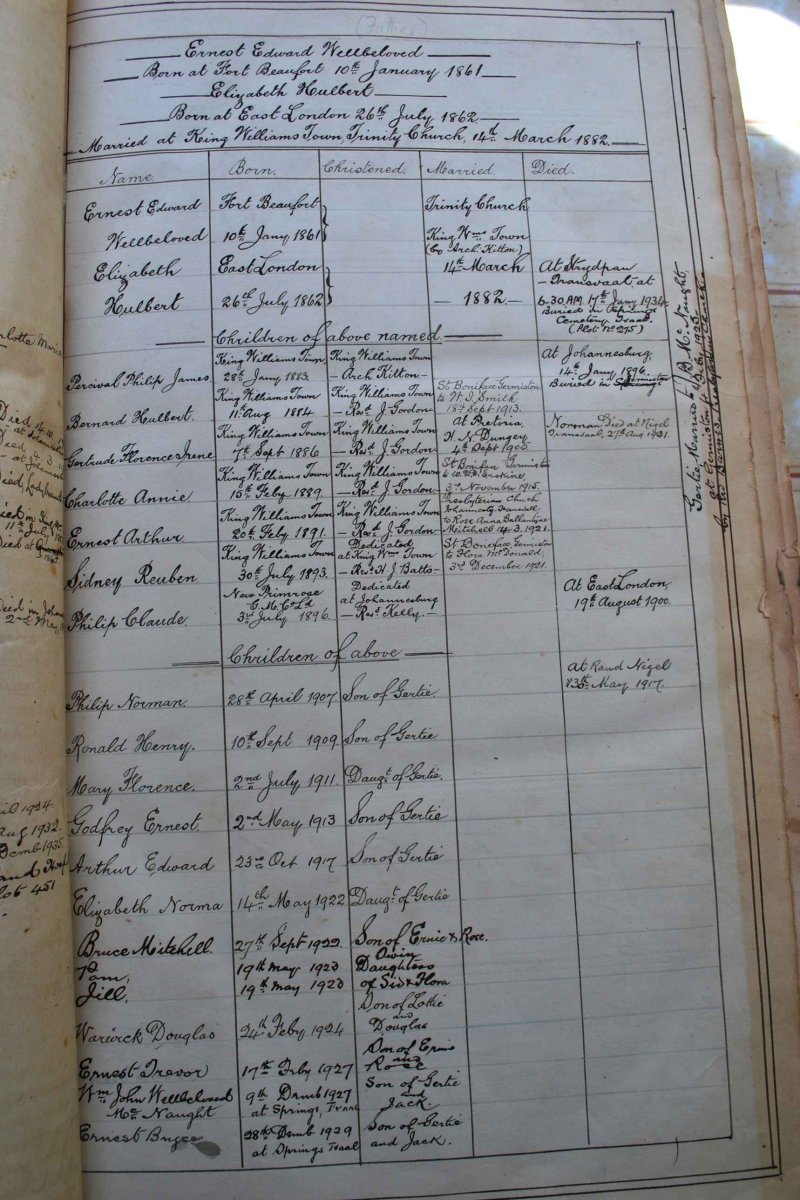 (Father)
Ernest Edward Wellbeloved
Born at Fort Beaufort 10th January 1861
Elizabeth Hulbert
Born at East London 26th July 1862
Married at King Williams Town, Trinity Church, 14th March 1882.
Name. Born. Christened. Married. Died.
Ernest Edward Fort Beaufort Trinity Church
Wellbeloved 10th Jany 1861 King Wms Town
(by Arch. Kitton)
Elizabeth East London 14th March At Strydpan
Transvaal, at
Hulbert 26th July 1862 — 1882 — 6-30 A.M. 17th Jany 1934
Buried in Springs
Cemetery Traal.
(Plot No 275)
Children of above named
King Williams Town King Williams Town At Johannesburg,
Percival Philip James 28th Jany 1883. Arch Kitton 14th Jany 1896.
Buried in
King Williams Town King Williams Town St Boniface Germiston
to W. J. Smith
Bernard Hulbert. 11th Aug 1884 Revd J. Gordon 18th Sept 1913.
King Williams Town King Williams Town At Pretoria, Norman Died at Nigel
H. N. Dungey Transvaal, 27th Aug 1921.
Gertrude Florence Irene 7th Sept 1886 Revd J. Gordon 4th Sept 1905.
King Williams Town King Williams Town St Boniface Germiston
to Erskine
Charlotte Annie 15th Feby 1889. Revd J. Gordon 3rd November 1915.
King Williams Town King Williams Town Presbyterian Church
Johannesburg Transvaal
to Rose Anna Ballantyne
Ernest Arthur 20th Feby 1891. Revd J. Gordon Mitchell 14.3.1921.
King Williams Town Dedicated St Boniface Germiston
at King Wms Town to Flora McDonald,
Sidney Reuben 30th July 1893. Revd H. J. Batts 3rd December 1921.
New Primrose Dedicated At East London,
G. M. Co Ld at Johannesburg 19th August 1900.
Philip Claude. 3rd July 1896. Revd Kelly.
Children of above
At Rand Nigel
May 1917.
Philip Norman. 28th April 1907 Son of Gertie.
Ronald Henry. 10th Sept 1909. Son of Gertie
Mary Florence. 2nd July 1911. Daugt. of Gertie.
Godfrey Ernest. 2nd May 1913 Son of Gertie
Arthur Edward 23rd Oct 1917 Son of Gertie
Elizabeth Norma 14th May 1922 Daugt. of Gertie
Bruce Mitchell. 27th Sept 1922. Son of Ernie & Rose.
Twin
Pam, 19th May 1923 Daughters
Jill, 19th May 1923 of Sid & Flora
Son of Lottie
and
Warwick Douglas 24th Feby 1924 Douglas
Son of Ernie
and
Ernest Trevor 17th Feby 1927 Rose
Wm John Wellbeloved 9th Dcmb 1927 Son of Gertie
and
McNaught at Springs, Trans Jack.
Ernest Bruce 28th Dcmb 1929 Son of Gertie
at Springs Traal and Jack.
Gertie Married to J. B. McNaught,
at Germiston 4th Feby 1925
by Burns, Presbyterian Church
Charlotte Maria
Died 14.10.
Died in
11th July
Died at
Died in Johan
2nd May
April 1924.
Aug 1932.
Dcemb 1935.
Plot 451